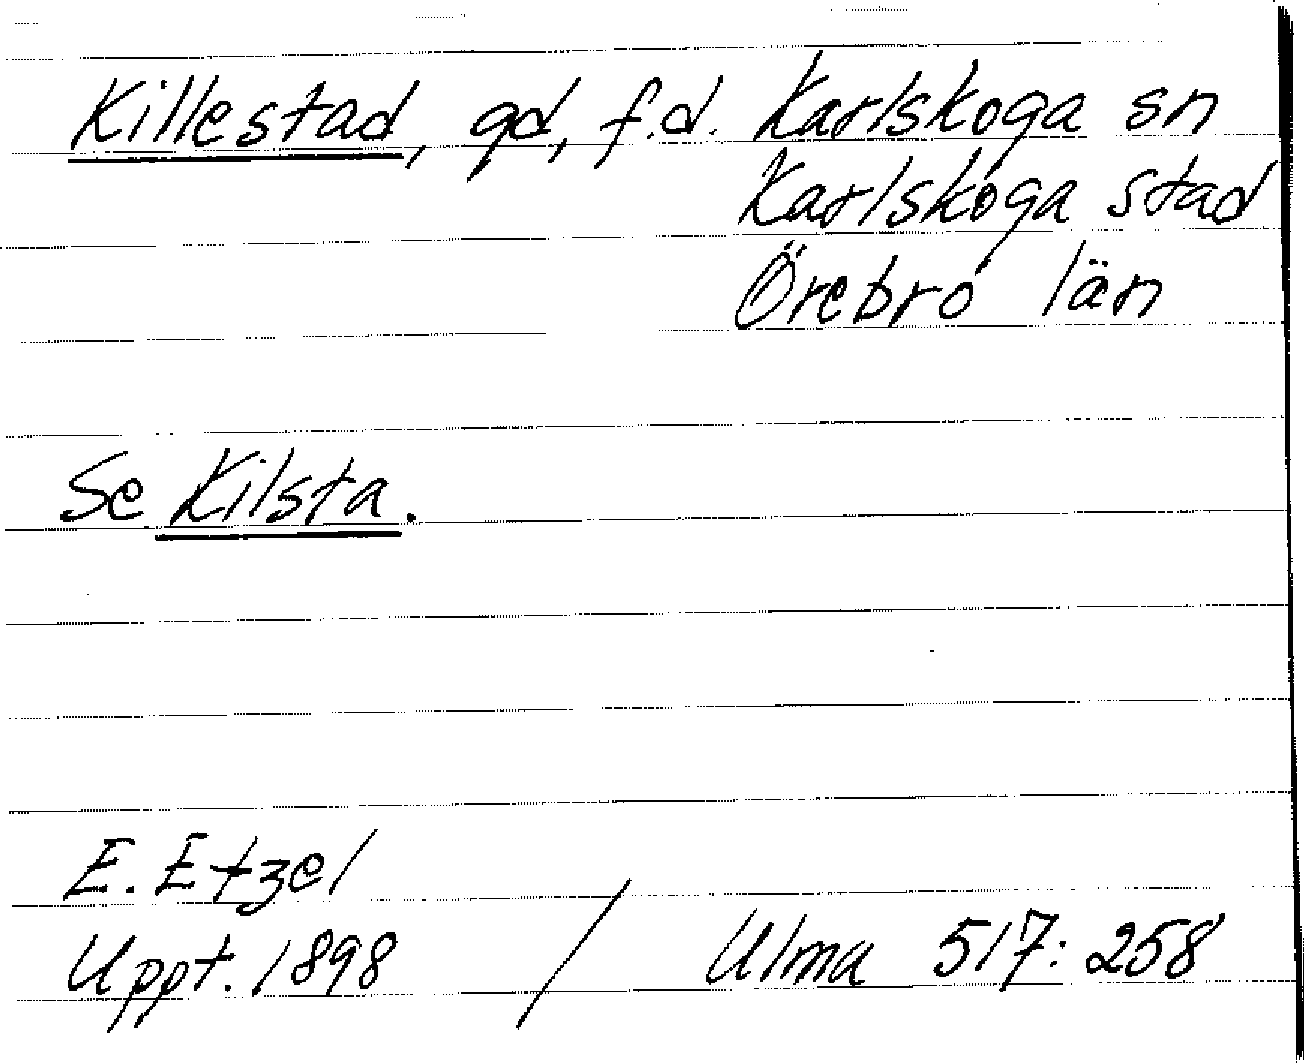 Killestad, gd, f.d. Karlskoga sn
Karlskoga stad
Örebro län
Se Kilsta.
E. Etzel
Uppt. 1898 / Ulma 517:258